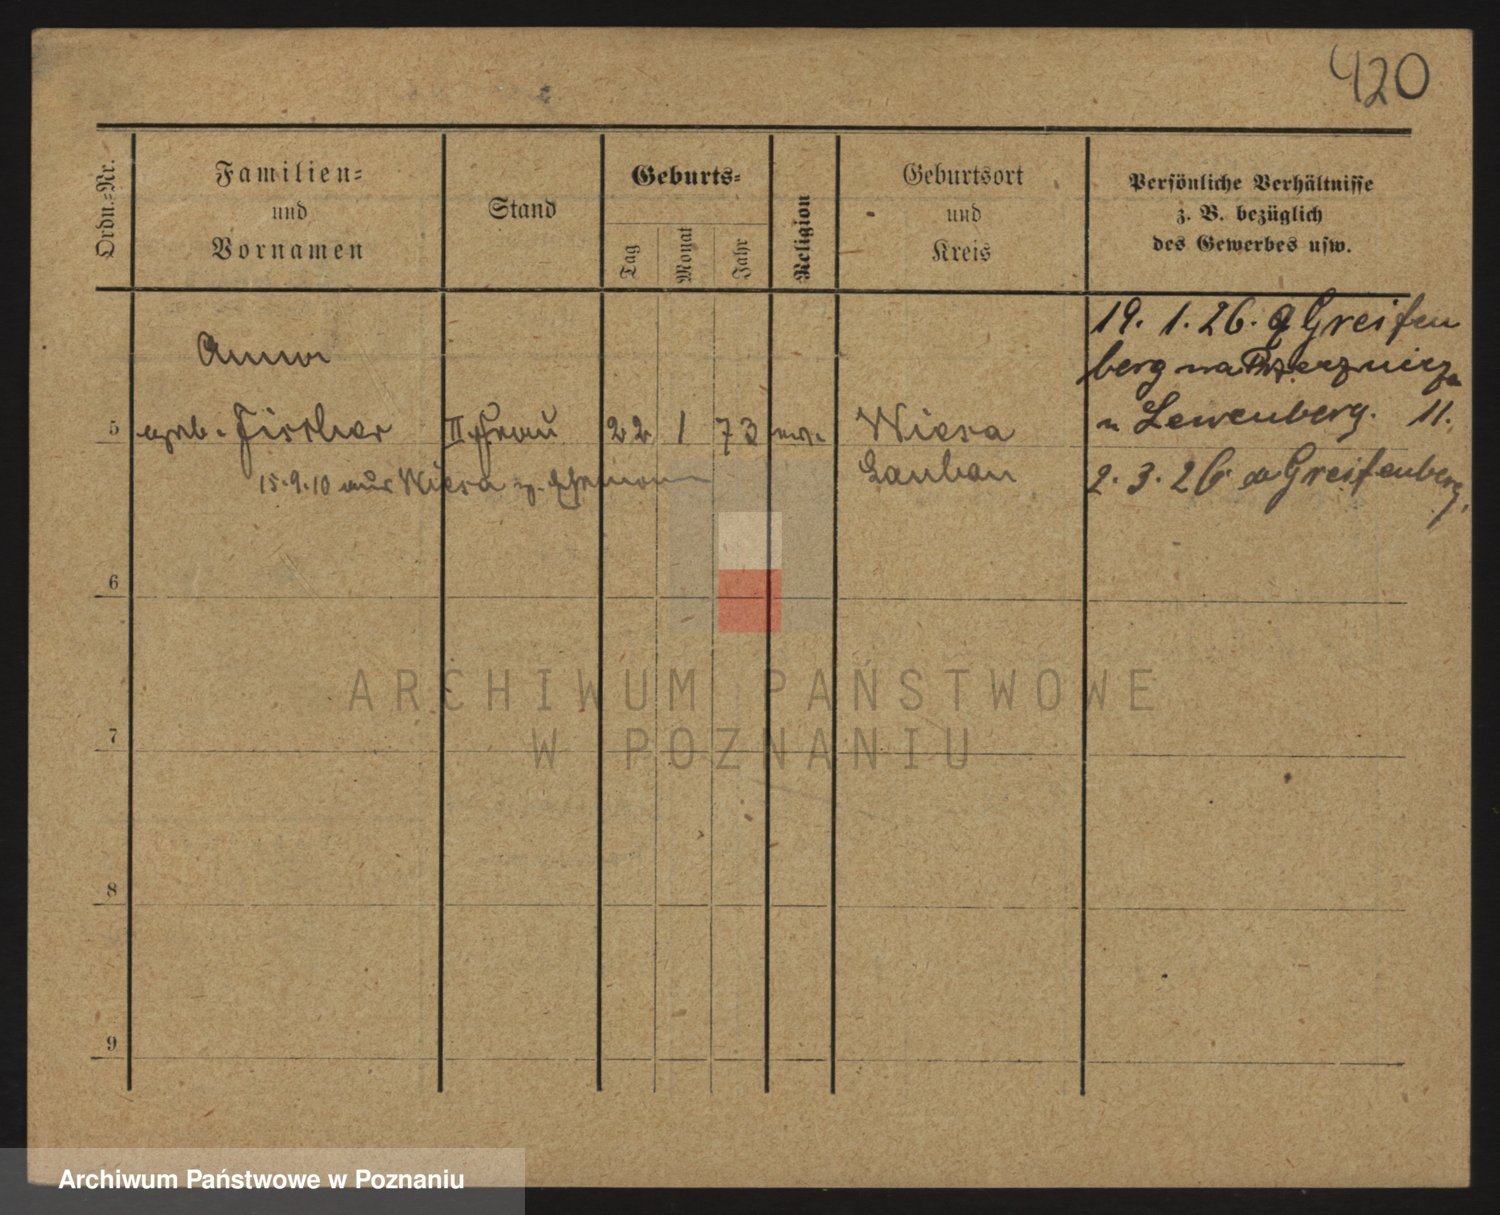 420
Ordn.-Nr.
Familien-
und
Vornamen
Stand
Geburts-
Tag
Monat
Jahr
Religion
Geburtsort
und
Kreis
Persönliche Verhältnisse
z. B. bezüglich
des Gewerbes usw.
Anna
5 geb. Fischer II Frau 22 1 73 ev. Wiesa
Lauban
15.9.10 aus Wiesa z. Ehemann
19. 1. 26. Greifen
berg na
Lewenberg. 11.
2. 3. 26 Greifenberg.
6
7
8
9
ARCHIWUM PAŃSTWOWE
W POZNANIU
Archiwum Państwowe w Poznaniu